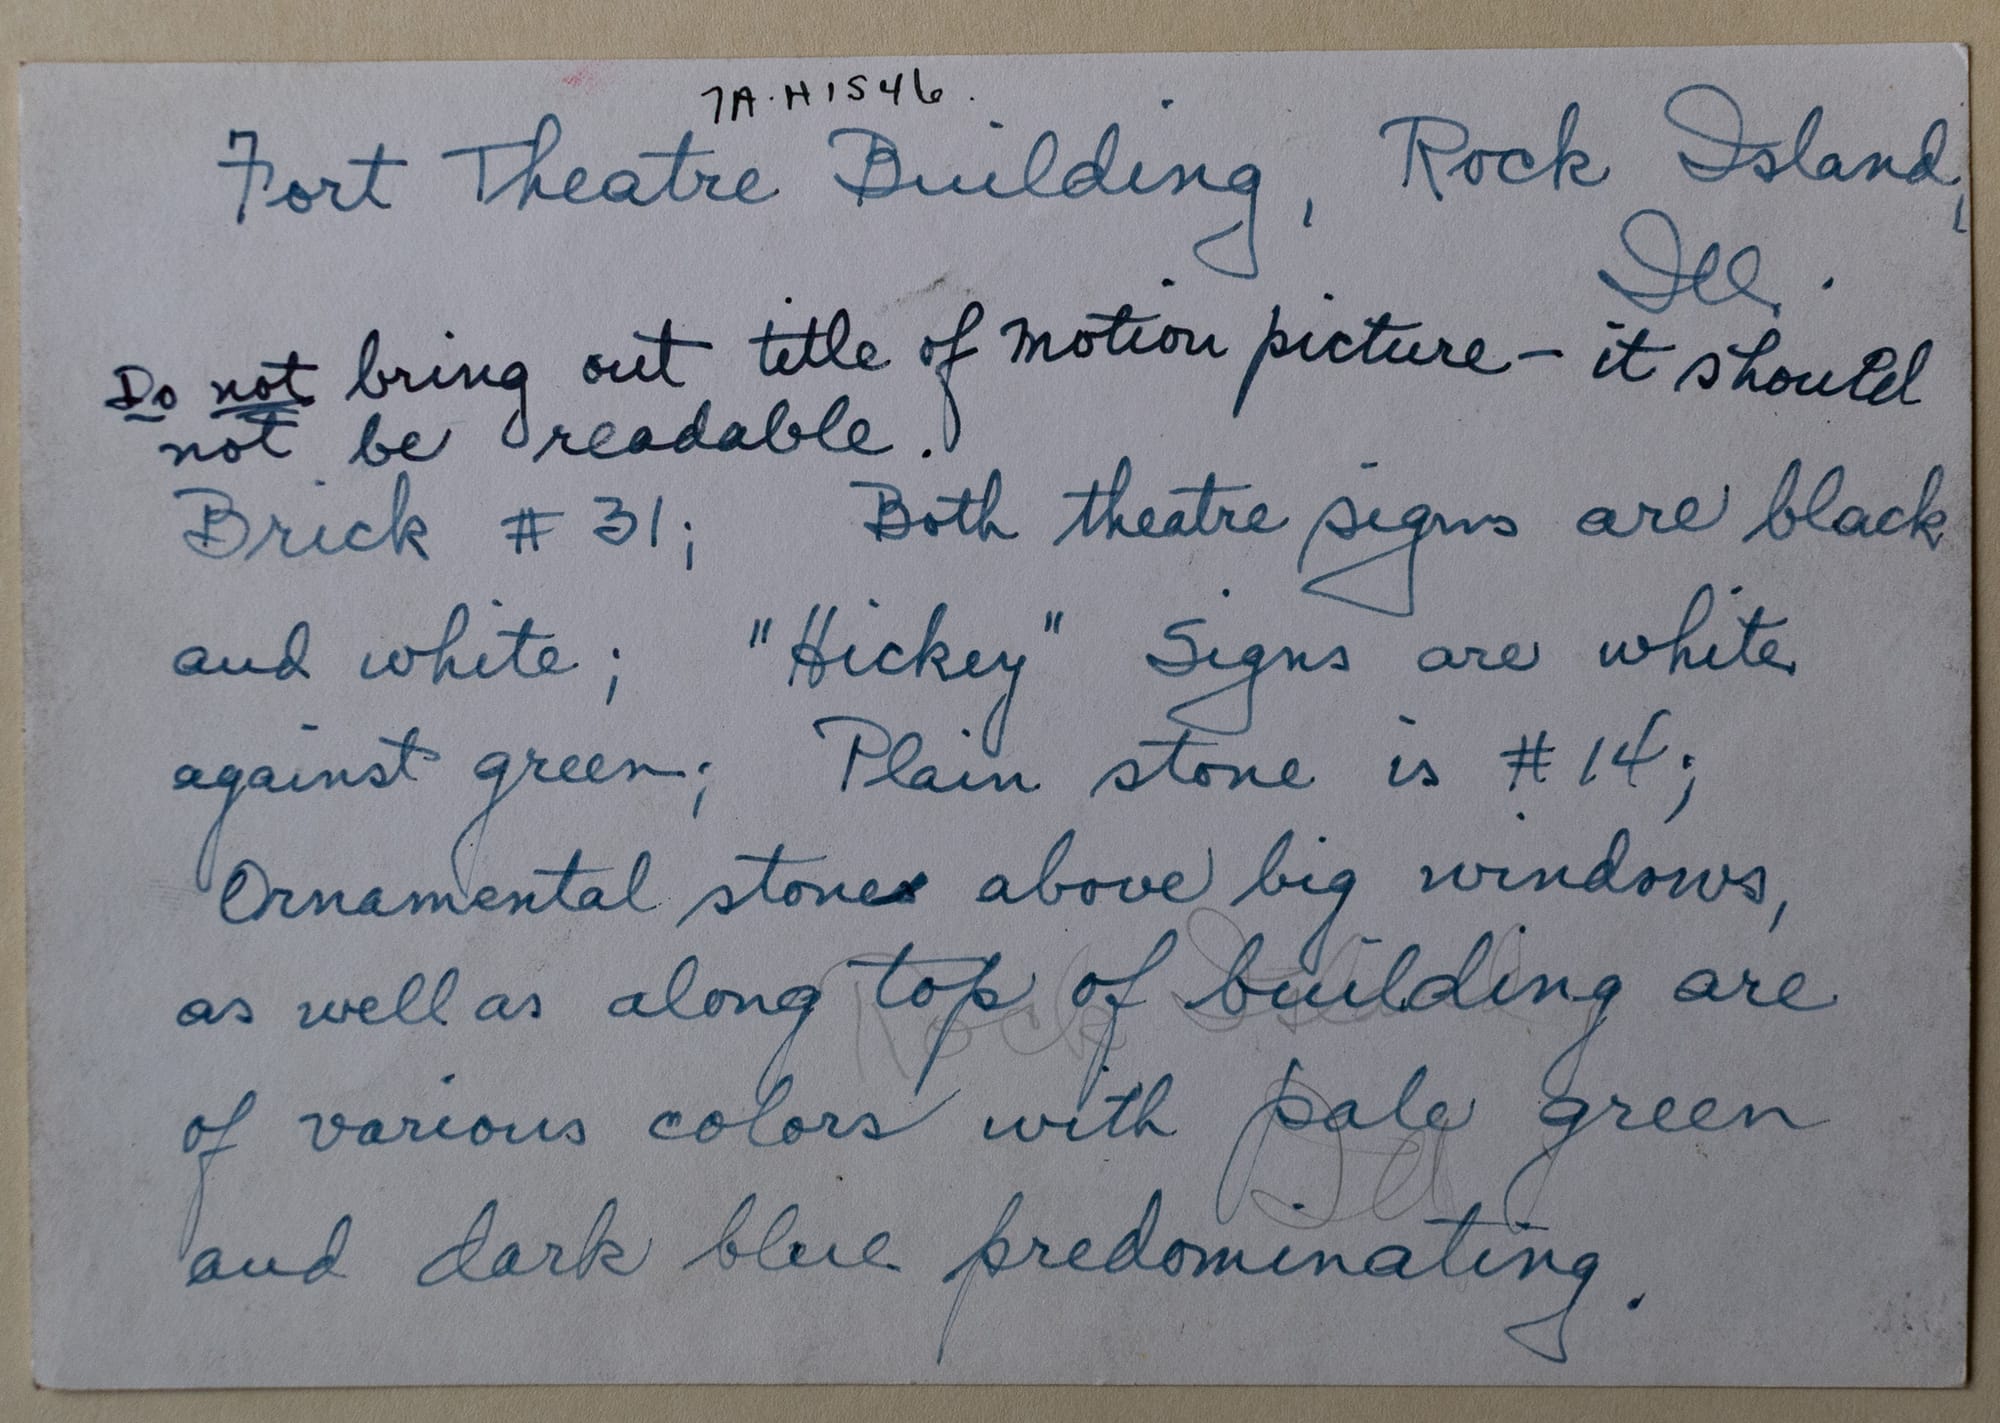 7A-H1546.
Fort Theatre Building, Rock Island,
Ill.
Do not bring out title of motion picture - it should
not be readable.
Brick #31; Both theatre signs are black
and white; "Hickey" Signs are white
against green; Plain stone is #14;
Ornamental stones above big windows,
as well as along top of building are
of various colors with pale green
and dark blue predominating.
Rock Island
Ill